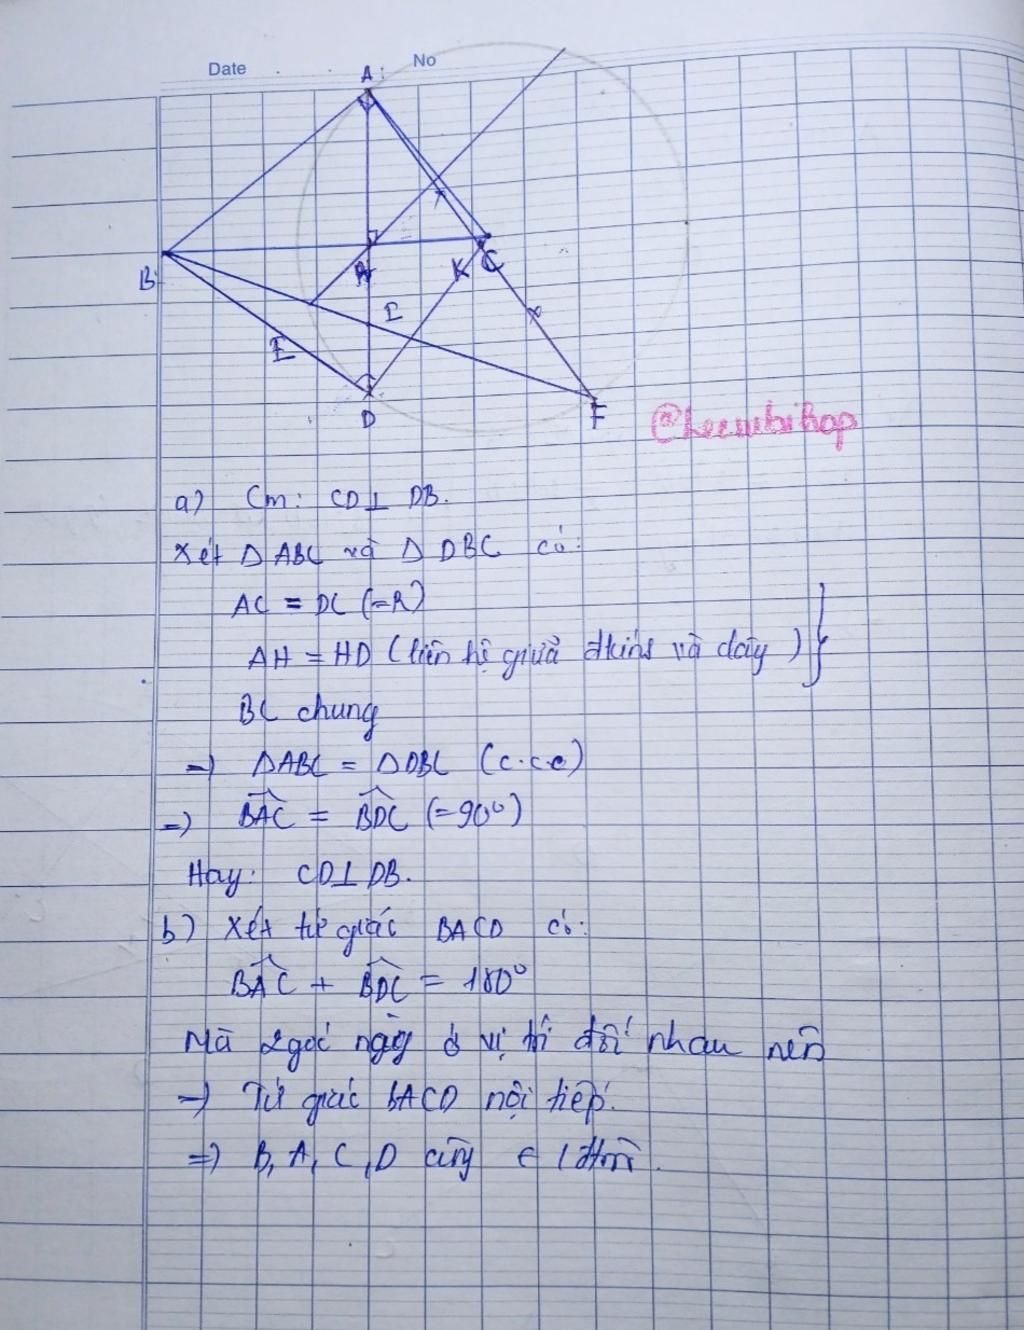 Date No
A
B
H
K C
I
E
D
F
a) Cm: CD⊥ DB.
Xét Δ ABC và Δ DBC có:
AC = DC (=R)
AH = HD (liên hệ giữa đkính và dây) }
BC chung
=> ΔABC = ΔDBC (c.c.c)
=> BAC = BDC (=90°)
Hay: CD⊥DB.
b) Xét tứ giác BACD có:
BAC + BDC = 180°
Mà 2 góc này ở vị trí đối nhau nên
=> Tứ giác BACD nội tiếp.
=> B, A, C, D cùng ∈ 1 đtròn.